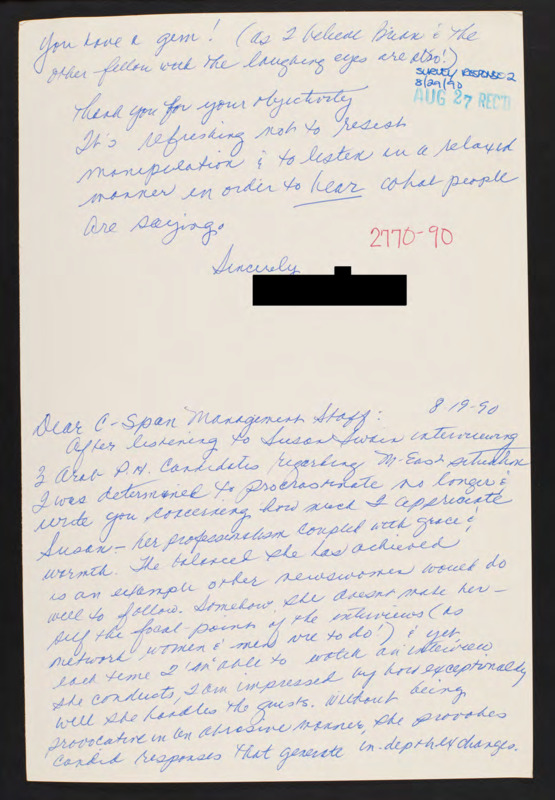 You have a gem! (as I believe Brian & the
other fellow with the laughing eyes are also!)
SURVEY RESPONSE 2
8/29/90
AUG 27 REC'D
Thank you for your objectivity
It's refreshing not to resist
manipulation & to listen in a relaxed
manner in order to hear what people
are saying.
2770-90
Sincerely
8-19-90
Dear C-Span Management Staff:
After listening to Susan Swain interviewing
2 Arab P.H. Candidates regarding M-East situation
I was determined to procrastinate no longer &
write you concerning how much I appreciate
Susan - her professionalism coupled with grace &
warmth. The balance she has achieved
is an example other newswomen would do
well to follow. Somehow she doesn't make her-
self the focal-point of the interviews (as
network women & men are to do) & yet
each time I am able to watch an interview
she conducts, I am impressed by how exceptionally
well she handles the guests. Without being
provocative in an abrasive manner, she provokes
candid responses that generate in-depth exchanges.